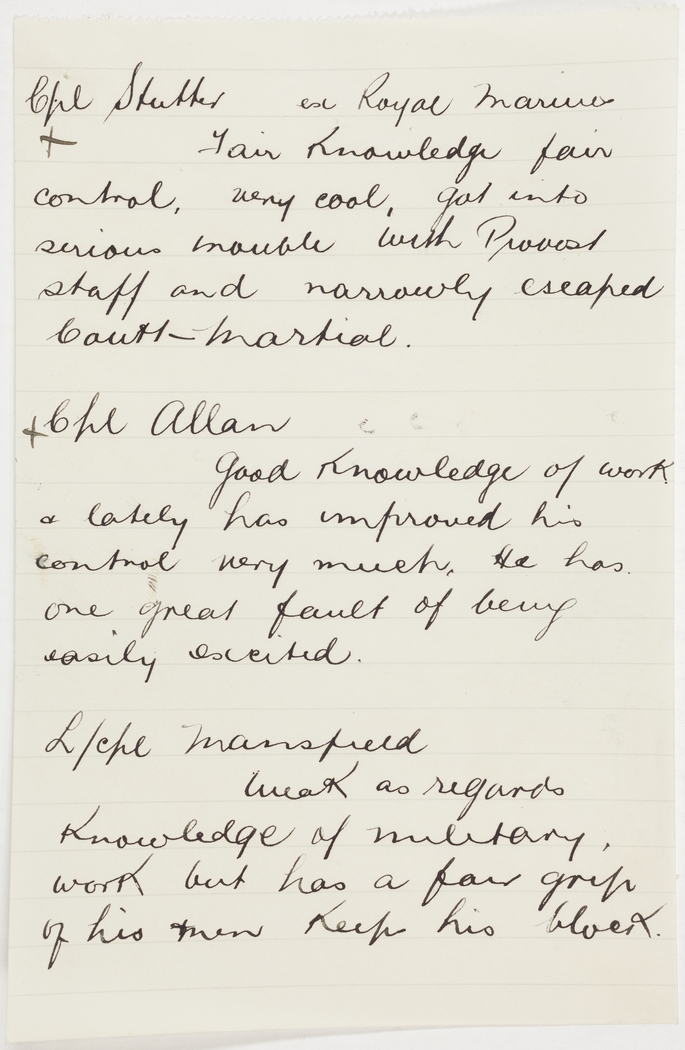 Cpl Stutter ex Royal Marines
+ Fair Knowledge fair
control, very cool, got into
serious trouble with Provost
staff and narrowly escaped
Court-Martial.
+Cpl Allan
Good Knowledge of work
& lately has improved his
control very much. He has
one great fault of being
easily excited.
L/cpl Mansfield
Weak as regards
Knowledge of military,
work but has a fair grip
of his men Keep his block.